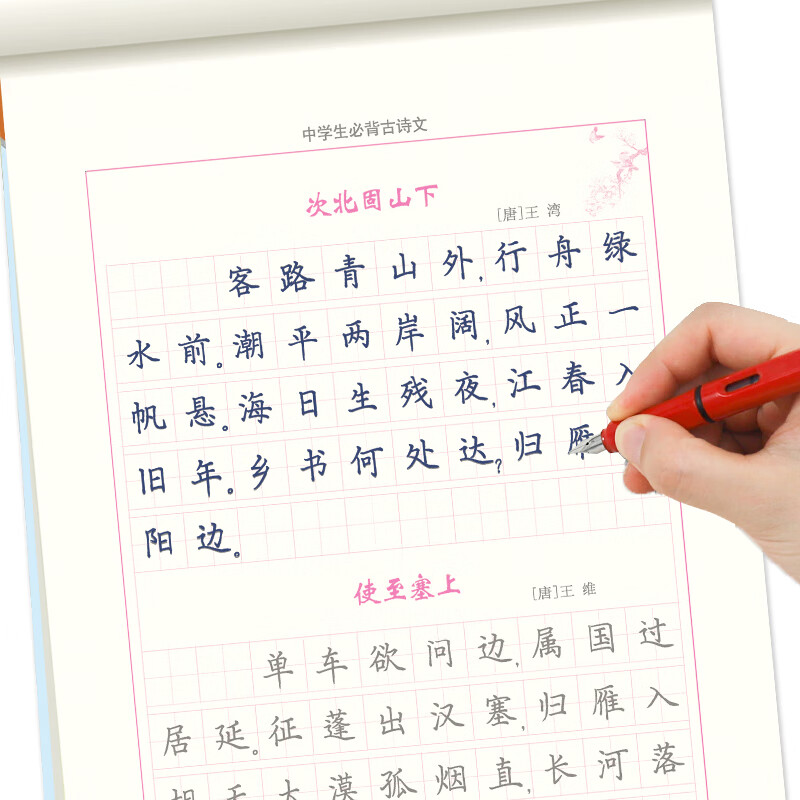 中学生必背古诗文
次北固山下
[唐]王 湾
客路青山外,行舟绿
水前。潮平两岸阔,风正一
帆悬。海日生残夜,江春入
旧年。乡书何处达?归雁
阳边。
使至塞上
[唐]王 维
单车欲问边,属国过
居延。征蓬出汉塞,归雁入
大漠孤烟直,长河落